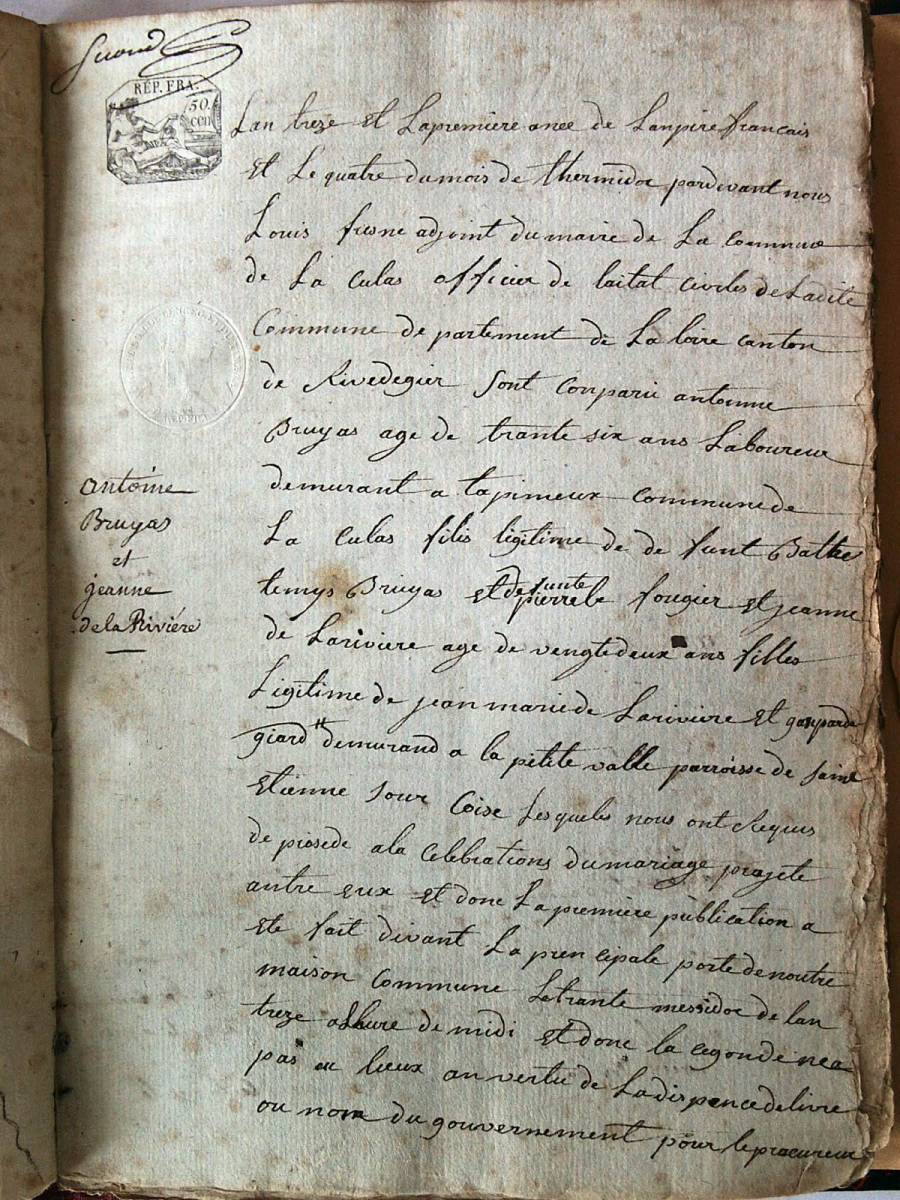 Second
RÉP. FRA.
50.
cen
Lan treze et Lapremiere anee de Lanpire francais
et Le quatre dumois de thermidor pardivant nous
Louis fresne adjoint du maire de La commune
de La Culas officier de laitat civiles de Ladite
Commune de partement de La loire canton
de Rivedegier sont conparu antoinne
Bruyas age de trante six ans Laboureur
demurant a tapimeux commune de
La Culas filis ligitime de de funt Bathe
lemys Bruyas et defunte pierrele fougier et jeanne
de Lariviere age de vengtedeux ans filles
Ligitime de jean marie de Lariviere et gasparde
giard demurand a la petite valle parroisse de saint
Etienne sour Coise Lesqueles nous ont Requis
de prosede ala Celebrations du mariage projete
antre eux et donc La premiere publication a
ete fait divant La prencipale porte de noutre
maison commune Letrante messidor de lan
treze alhure de midi et donc la cegonde nea
pas au lieux an vertu de La dispence delivre
ou nom du gouvernement pour leprocureur
antoine
Bruyas
et
jeanne
de la Riviére